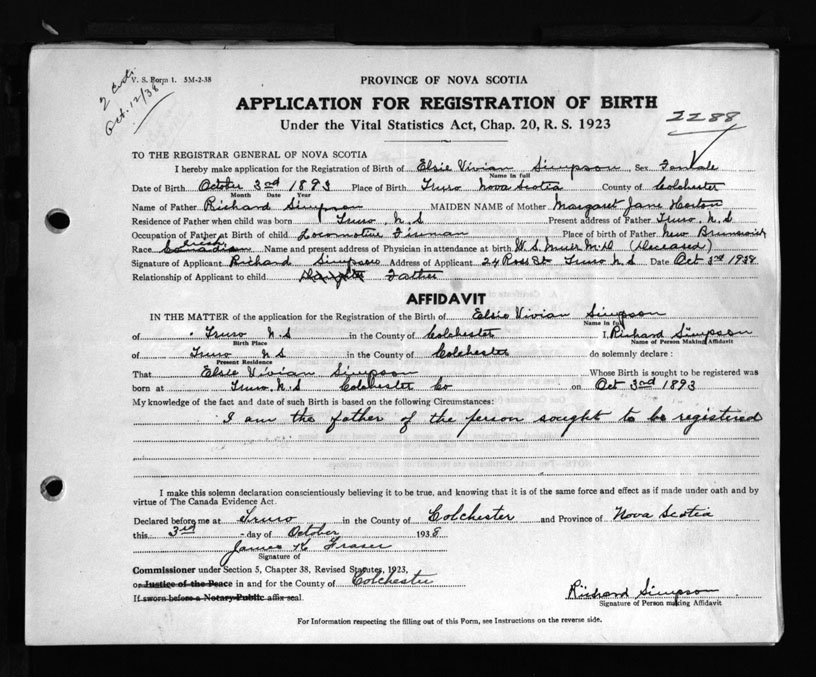 V. S. Form 1. 5M-2-38
2 Certs.
Oct. 12/38
PROVINCE OF NOVA SCOTIA
APPLICATION FOR REGISTRATION OF BIRTH
2288
Under the Vital Statistics Act, Chap. 20, R. S. 1923
TO THE REGISTRAR GENERAL OF NOVA SCOTIA
I hereby make application for the Registration of Birth of Elsie Vivian Simpson Sex Female
Name in full
Date of Birth October 3rd 1893 Place of Birth Truro Nova Scotia County of Colchester
Month Date Year
Name of Father Richard Simpson MAIDEN NAME of Mother Margaret Jane Horton
Residence of Father when child was born Truro, N.S Present address of Father Truro, N.S
Occupation of Father at Birth of child Locomotive Fireman Place of birth of Father New Brunswick
Race Irish Canadian Name and present address of Physician in attendance at birth W.S. Muir M.D (Deceased)
Signature of Applicant Richard Simpson Address of Applicant 24 Ross St Truro N.S Date Oct 3rd 1938
Relationship of Applicant to child Daughter Father
AFFIDAVIT
IN THE MATTER of the application for the Registration of the Birth of Elsie Vivian Simpson
Name in full
of Truro N.S in the County of Colchester I, Richard Simpson
Birth Place Name of Person Making Affidavit
of Truro N S in the County of Colchester do solemnly declare:
Present Residence
That Elsie Vivian Simpson Whose Birth is sought to be registered was
born at Truro, N.S Colchester Co on Oct 3rd 1893
My knowledge of the fact and date of such Birth is based on the following Circumstances:
I am the father of the person sought to be registered
I make this solemn declaration conscientiously believing it to be true, and knowing that it is of the same force and effect as if made under oath and by
virtue of The Canada Evidence Act.
Declared before me at Truro in the County of Colchester and Province of Nova Scotia
this 3rd day of October 1938
James K Fraser
Signature of
Commissioner under Section 5, Chapter 38, Revised Statutes, 1923,
or Justice of the Peace in and for the County of Colchester
If sworn before a Notary Public affix seal.
Richard Simpson
Signature of Person making Affidavit
For Information respecting the filling out of this Form, see Instructions on the reverse side.